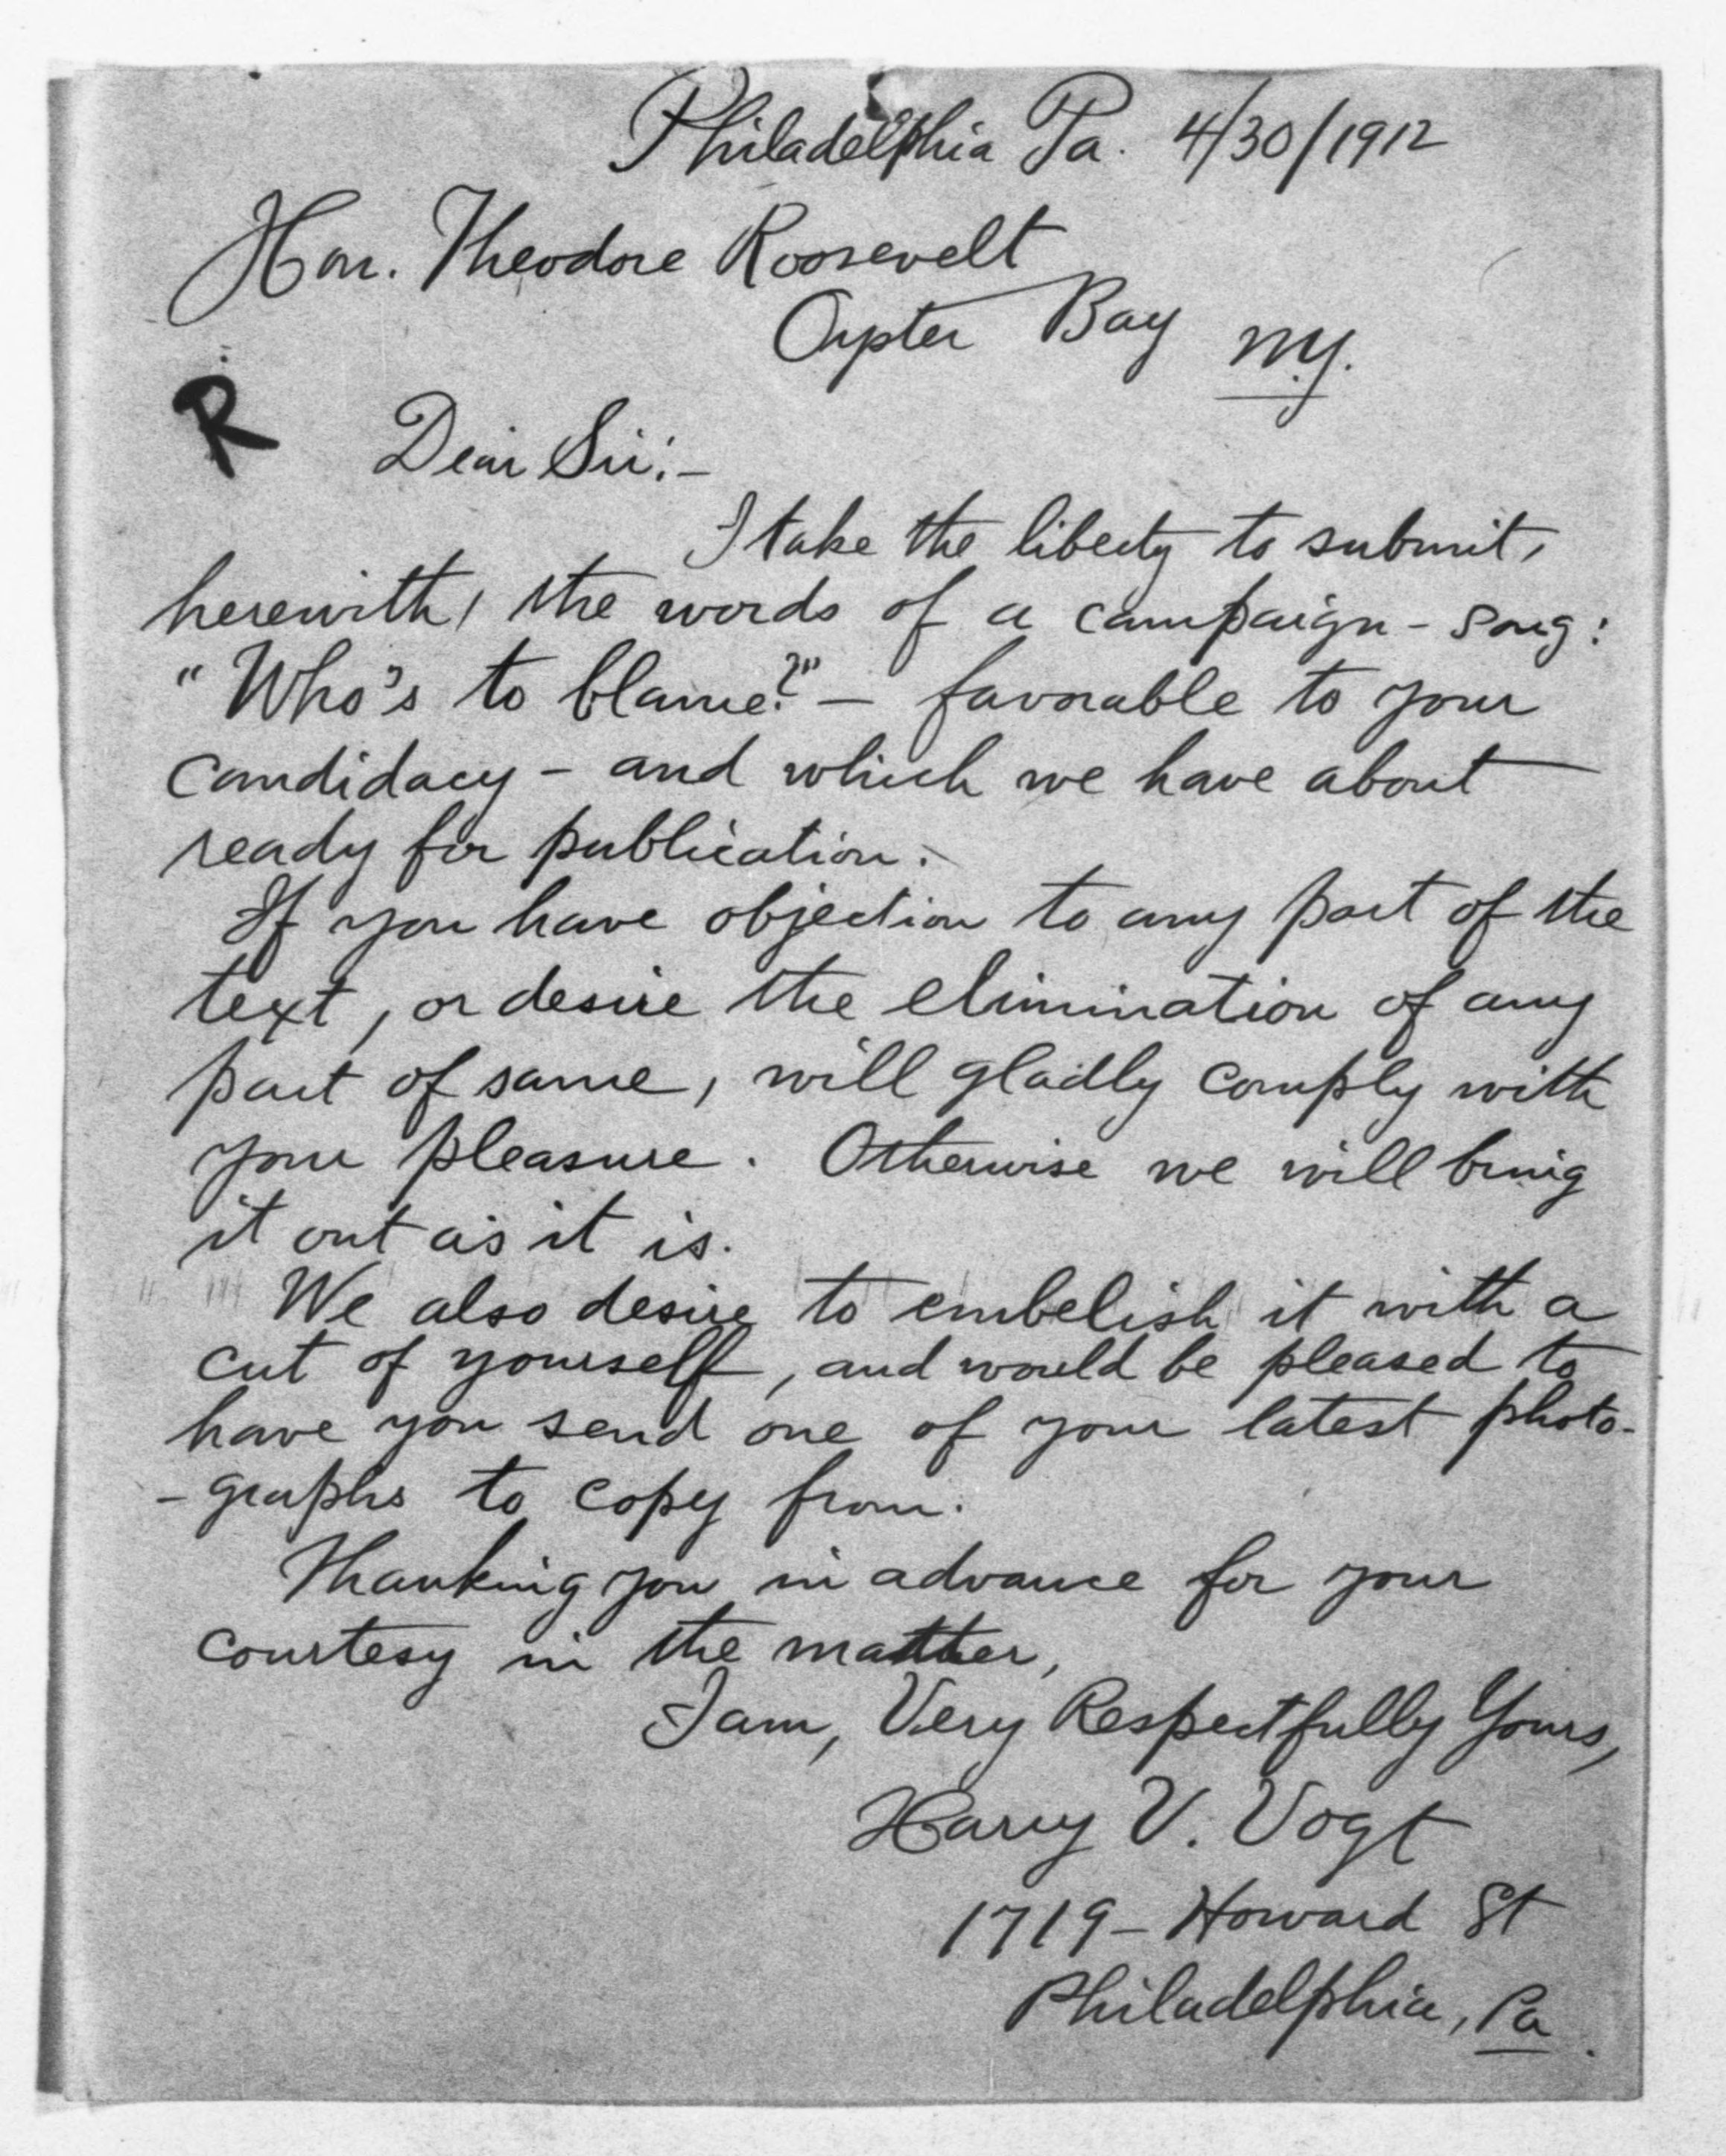 Philadelphia Pa. 4/30/1912
Hon. Theodore Roosevelt
Oyster Bay N.Y.
R
Dear Sir:-
I take the liberty to submit,
herewith, the words of a campaign-song:
"Who's to blame?" - favorable to your
candidacy - and which we have about
ready for publication.
If you have objection to any part of the
text, or desire the elimination of any
part of same, will gladly comply with
your pleasure. Otherwise we will bring
it out as it is.
We also desire to embelish it with a
cut of yourself, and would be pleased to
have you send one of your latest photo-
-graphs to copy from.
Thanking you in advance for your
courtesy in the matter,
I am, Very Respectfully Yours,
Harry V. Vogt
1719 - Howard St
Philadelphia, Pa.